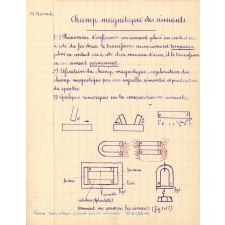 Champ magnétique des aimants
1°) Phénomène d'influence : un aimant placé au contact ou
à côté du fer doux le transforme en un aimant temporaire
placé au contact ou à côté d'un morceau d'acier, il le transforme
en un aimant permanent.
2°) Définition du champ magnétique, exploration du
champ magnétique par une aiguille aimantée et production
du spectre
3°) Quelques remarques sur la conservation des aimants.
comment on conserve les aimants (fig 1 et 2)
Champ magnétique